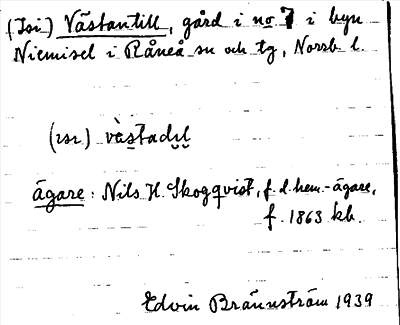 (Isi) Västantill, gård i no 7 i byn
Niemisel i Råneå sn och tg, Norrb. l.
(ısı) vàstadıl
ägare: Nils H. Skogqvist, f. d. hem.-ägare,
f. 1863 kb.
Edvin Brännström 1939